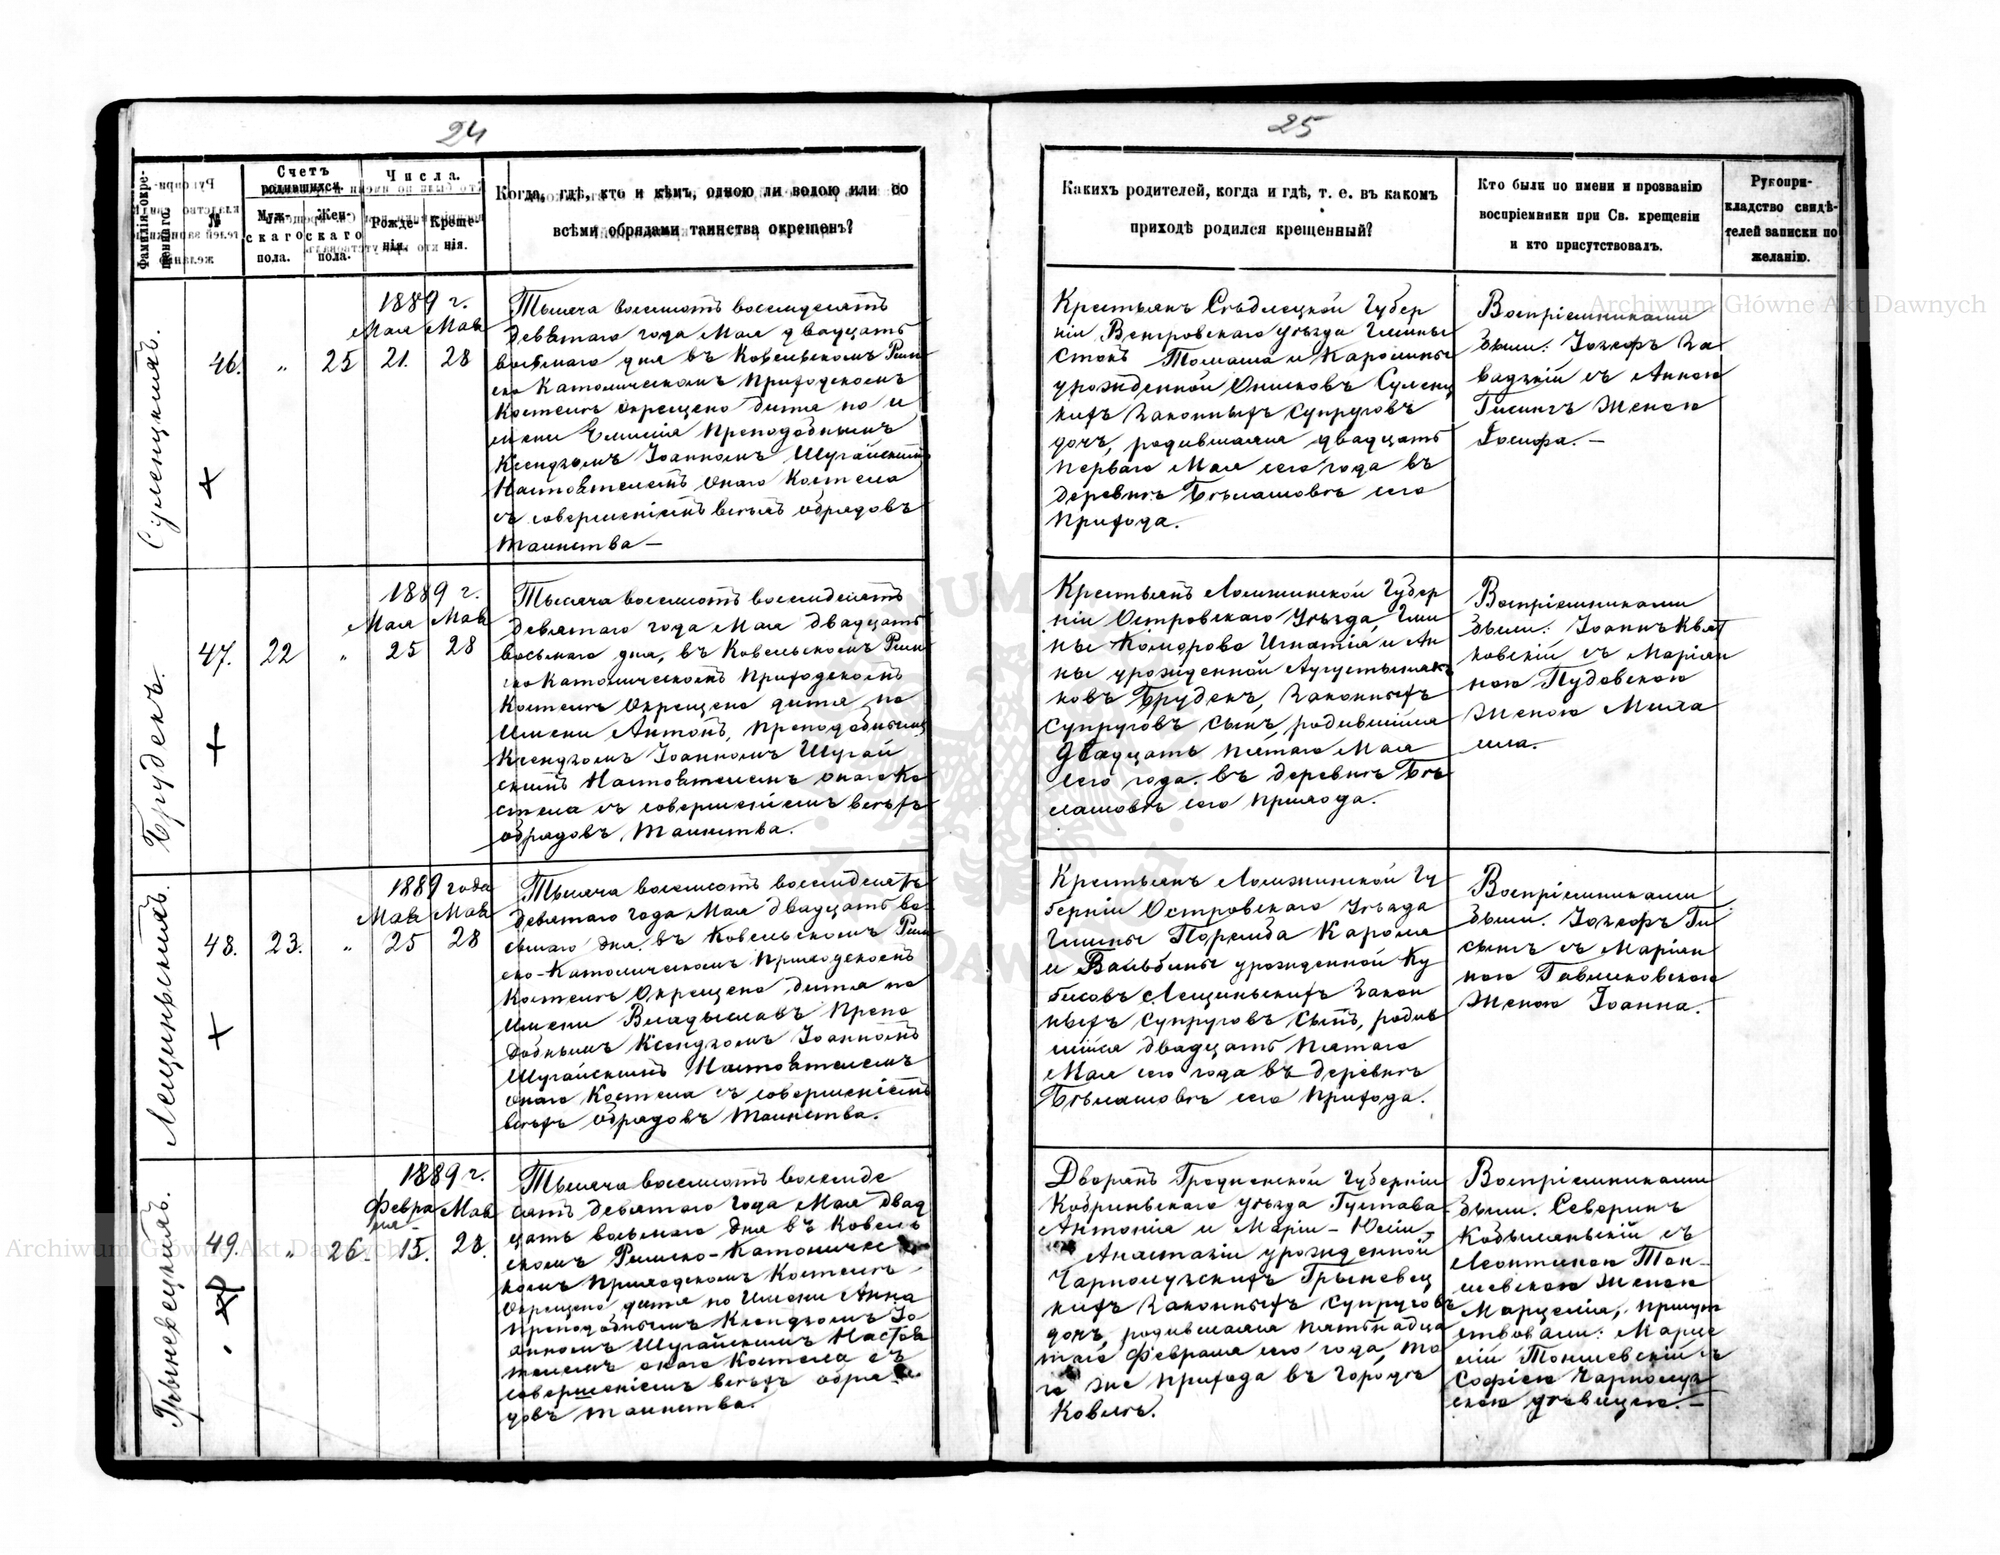 24
Фамилія окре-
щеннаго.
№
Счетъ
родившихся.
Муж-
скаго
пола.
Жен-
скаго
пола.
Числа.
Рожде-
нія.
Креще-
нія.
Когда, гдѣ, кто и кѣмъ, одною ли водою или со
всѣми обрядами таинства окрещенъ?
Суленцкихъ.
46.
"
25
1889 г.
Мая Мая
21. 28
Тысяча восемьсотъ восемьдесятъ
девятаго года Мая двадцать
восьмаго дня въ Ковельскомъ Рим
ско Католическомъ Приходскомъ
Костелѣ окрещено дитя по и
мени Емилія Преподобнымъ
Ксендзомъ Іоанномъ Шугайскимъ
Настоятелемъ онаго Костела
съ совершеніемъ всѣхъ обрядовъ
таинства —
Прудекъ.
47.
22
"
1889 г.
Мая Мая
25 28
Тысяча восемьсотъ восемьдесятъ
девятаго года Мая двадцать
восьмаго дня, въ Ковельскомъ Рим
ско Католическомъ Приходскомъ
Костелѣ окрещено дитя по
имени Антонъ, Преподобнымъ
Ксендзомъ Іоанномъ Шугай
скимъ Настоятелемъ онаго Ко
стела съ совершеніемъ всѣхъ
обрядовъ таинства.
Лещиньскихъ.
48.
23.
"
1889 года
Мая Мая
25 28
Тысяча восемьсотъ восемьдесятъ
девятаго года Мая двадцать во
сьмаго дня въ Ковельскомъ Рим
ско-Католическомъ Приходскомъ
Костелѣ окрещено дитя по
имени Владыславъ Препо
добнымъ Ксендзомъ Іоанномъ
Шугайскимъ Настоятелемъ
онаго Костела съ совершеніемъ
всѣхъ обрядовъ таинства.
Грыневецкихъ.
49.
"
26.
1889 г.
Февра Мая
ля
15. 28.
Тысяча восемьсотъ восемьде
сятъ девятаго года Мая двад
цать восьмаго дня въ Ковель
скомъ Римско-Католичес
комъ Приходскомъ Костелѣ
окрещено дитя по имени Анна
Преподобнымъ Ксендзомъ Іо
анномъ Шугайскимъ Настоя
телемъ онаго Костела съ
совершеніемъ всѣхъ обря
довъ таинства.
25
Какихъ родителей, когда и гдѣ, т. е. въ какомъ
приходѣ родился крещенный?
Кто были по имени и прозванію
воспріемники при Св. крещеніи
и кто присутствовалъ.
Рукопри-
кладство свидѣ-
телей записки по
желанію.
Крестьянъ Сѣдлецкой Губер
ніи Венгровскаго уѣзда Гмины
Стокъ Томаша и Каролины
урожденной Онисковъ Суленц
кихъ законныхъ супруговъ
дочь, родившаяся двадцать
перваго Мая сего года въ
деревнѣ Бѣлашовѣ сего
Прихода.
Воспріемниками
были: Іозефъ За
вадзкій съ Анною
Гисингъ женою
Іосифа. —
Крестьянъ Ломжинской Губер
ніи Островскаго Уѣзда, Гми
ны Коморово Игнатія и Ан
ны урожденной Аугустыняк
ковъ Прудекъ, законныхъ
супруговъ сынъ, родившійся
двадцать пятаго Мая
сего года. въ деревнѣ Бѣ
лашовѣ сего Прихода.
Воспріемниками
были: Іоаннъ Квят
ковскій съ Маріан
ною Пудовскою
женою Миха
ила.
Крестьянъ Ломжинской Гу
берніи Островскаго Уѣзда
Гмины Поремба Кароля
и Вальбины урожденной Ку
бисовъ Лещиньскихъ закон
ныхъ супруговъ сынъ, родив
шійся двадцать пятаго
Мая сего года въ деревнѣ
Бѣлашовѣ сего Прихода.
Воспріемниками
были. Іозефъ Ги
сынгъ съ Маріан
ною Гавликовскою
женою Іоанна.
Дворянъ Гродненской Губерніи
Кобриньскаго уѣзда Густава
Антонія и Маріи-Юліи-
Анастазіи урожденной
Чарномузскихъ Грыневец
кихъ законныхъ супруговъ
дочь, родившаяся пятнадца
таго Февраля сего года, то
го же Прихода въ городѣ
Ковелѣ.
Воспріемниками
были. Северинъ
Кобылянскій съ
Леонтиною Тон-
шевскою женою
Марцелія, присут
ствовали: Марце
лій Тоншевскій съ
Софіею Чарномуз
скою дѣвицею. —
Archiwum Główne Akt Dawnych
Archiwum Główne Akt Dawnych